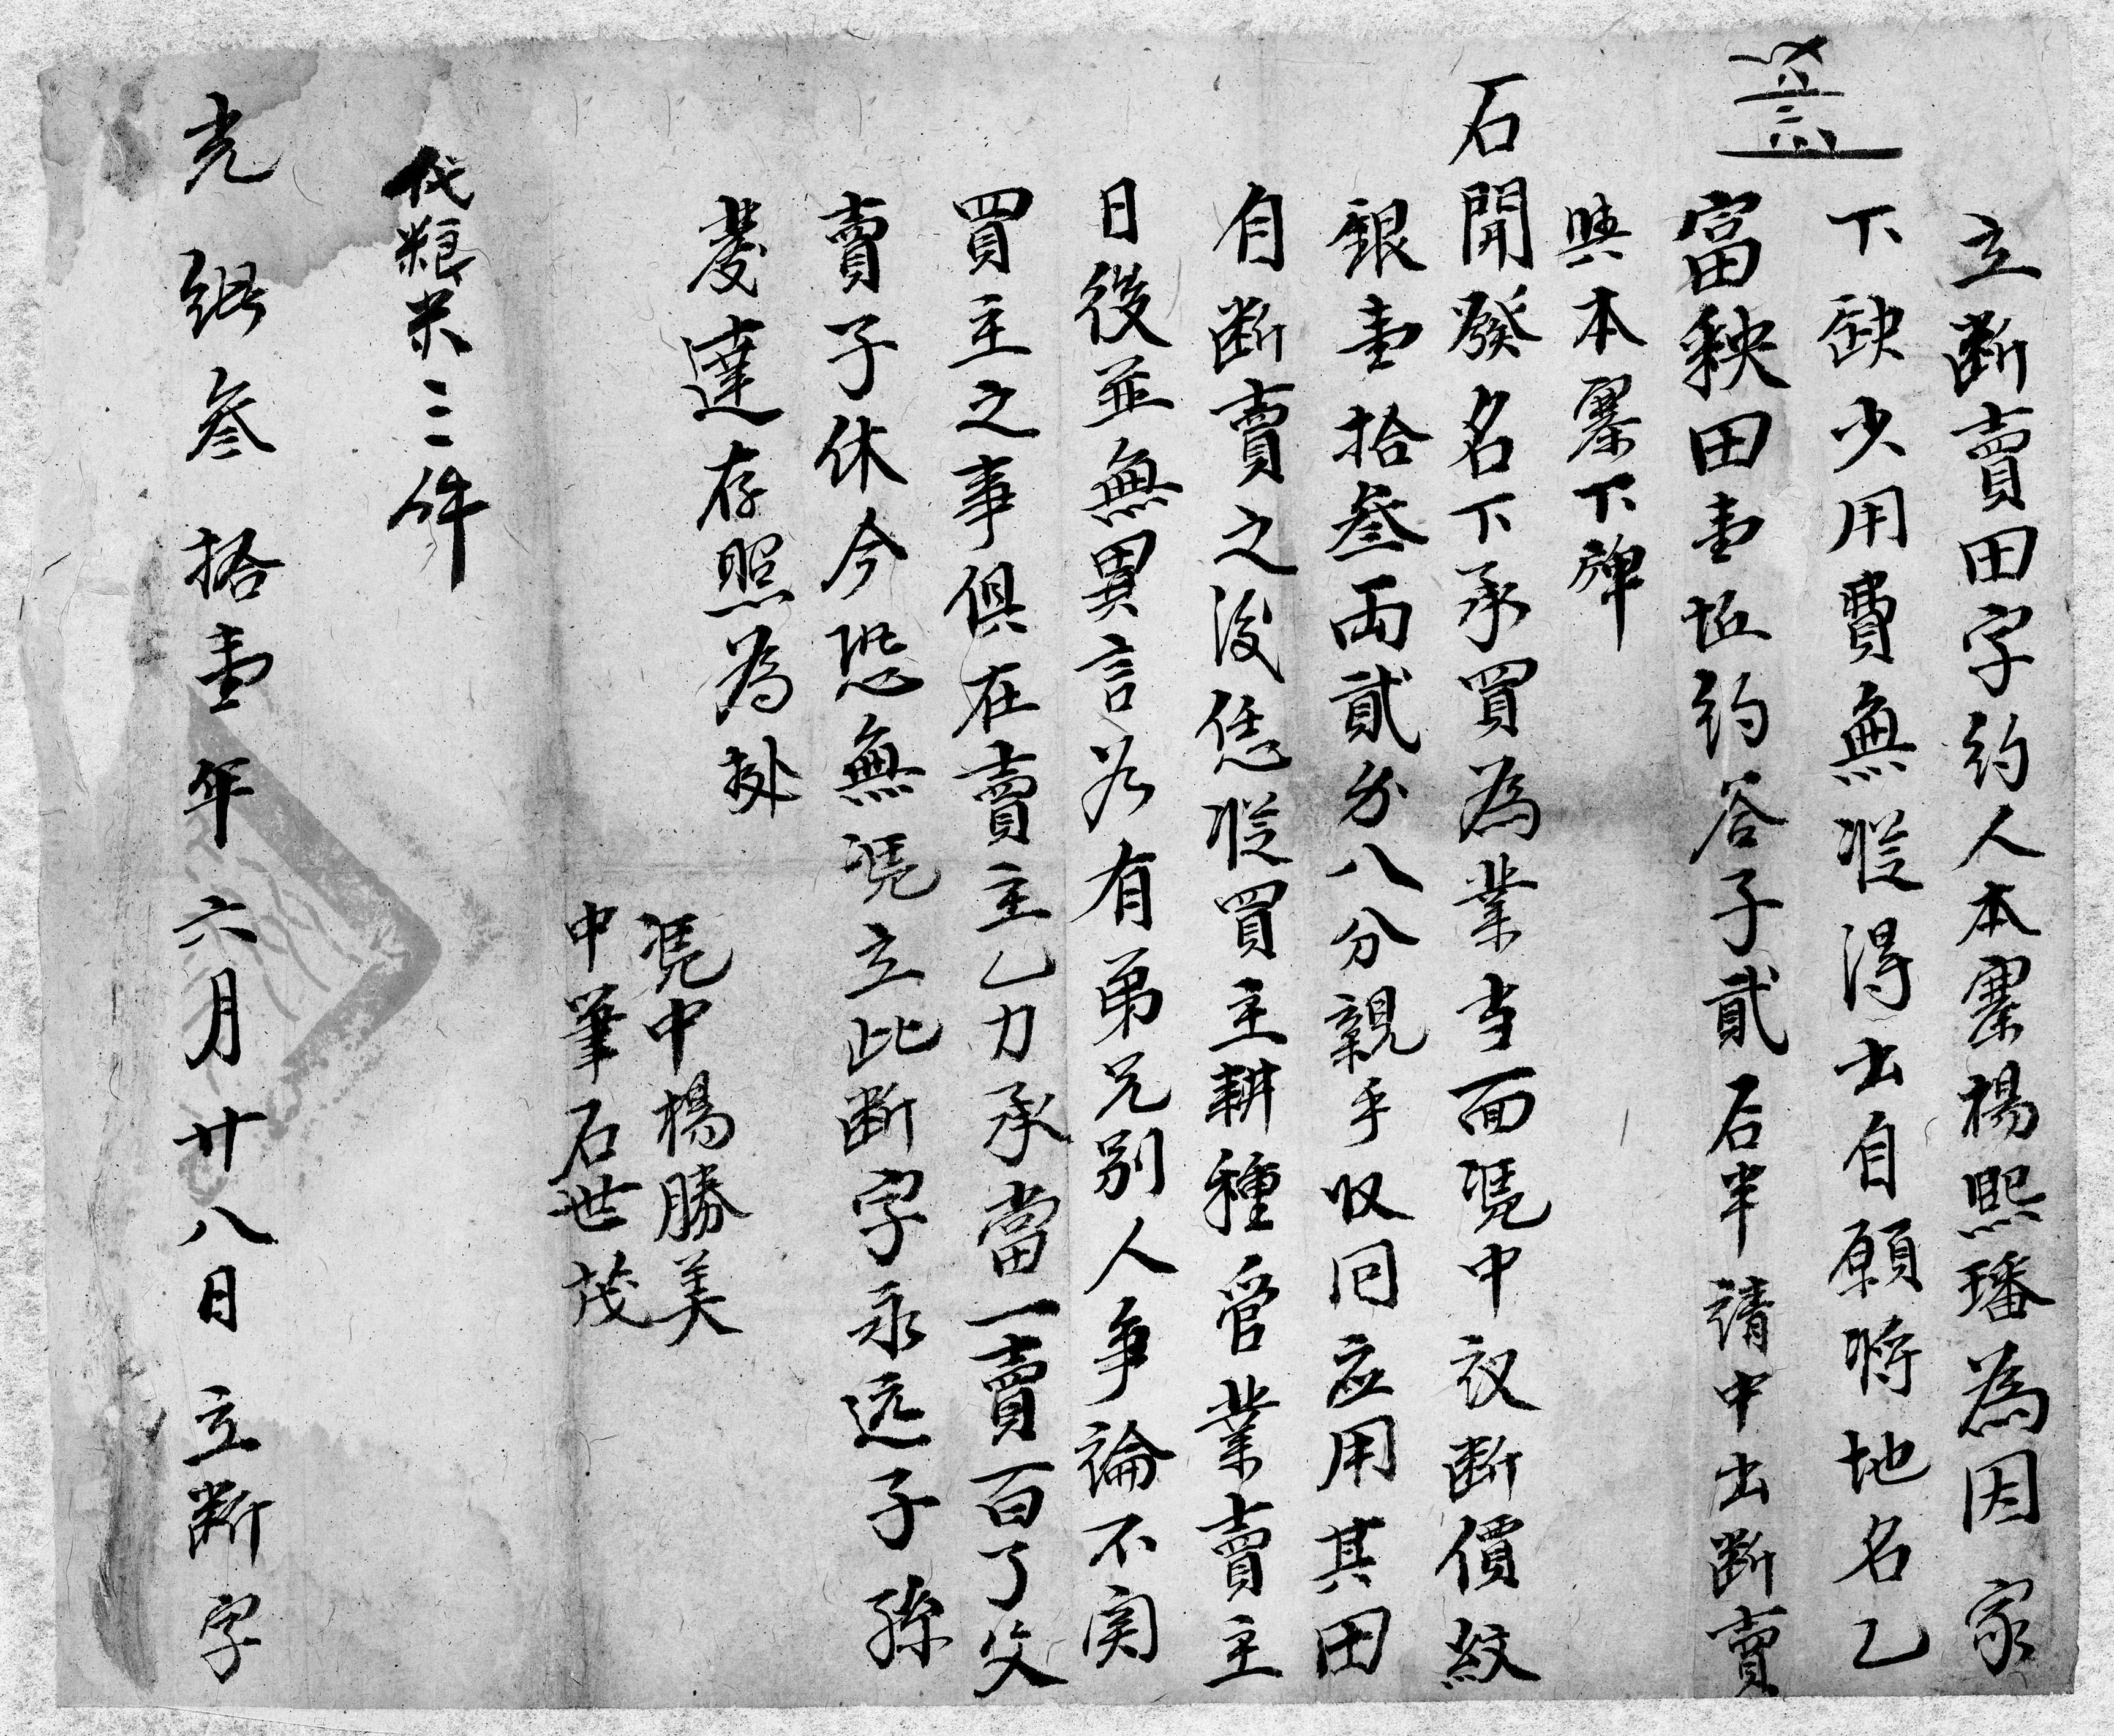 立断賣田字約人本寨楊熙璠為因家
下缺少用費無從得出自願將地名乙
富秧田壹坵約谷子貳石半請中出断賣
與本寨下牌
石開發名下承買為業当面凭中议断價紋
銀壹拾叁両貳分八分親手收囘应用其田
自断賣之後恁從買主耕種管業賣主
日後並無異言若有弟兄别人争論不関
買主之事俱在賣主乙力承當一賣百了父
賣子休今恐無凭立此断字永远子孫
發達存照為拠
凭中楊勝美
中筆石世茂
代粮米三件
光緒叁拾壹年六月廿八日立断字